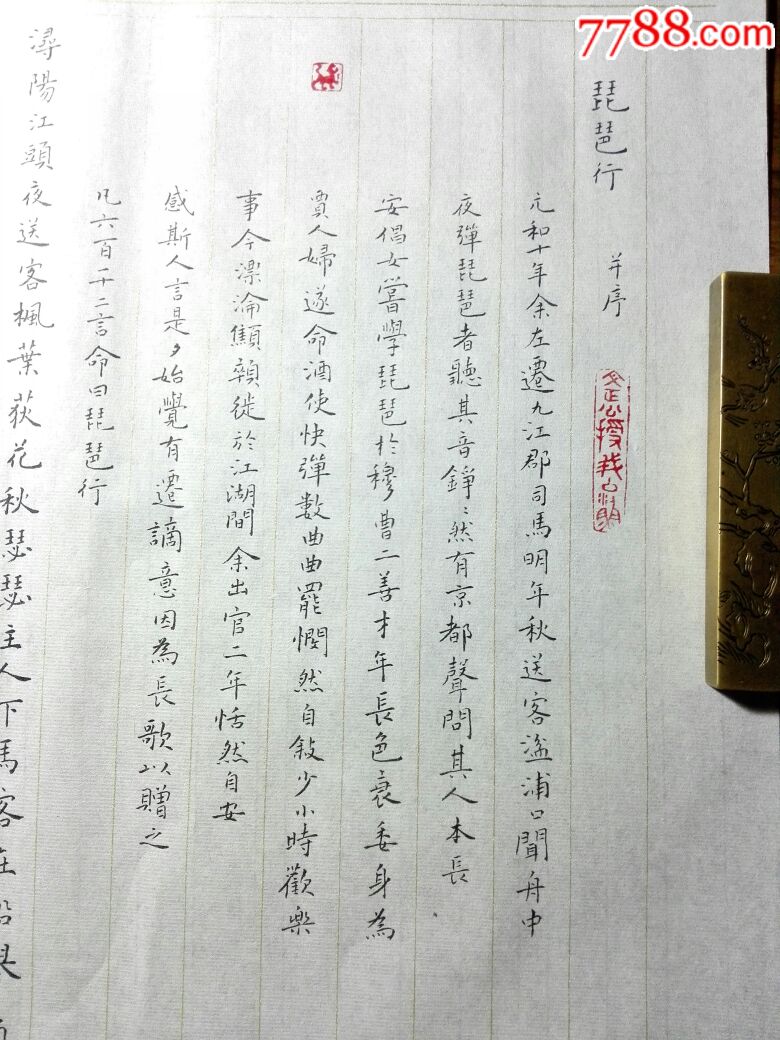 7788.com
琵琶行 并序
元和十年余左遷九江郡司馬明年秋送客湓浦口聞舟中
夜彈琵琶者聽其音錚〻然有京都聲問其人本長
安倡女嘗學琵琶於穆曹二善才年長色衰委身為
賈人婦遂命酒使快彈數曲曲罷憫然自敍少小時歡樂
事今漂淪顦顇徙於江湖間余出官二年恬然自安
感斯人言是夕始覺有遷謫意因為長歌以贈之
凡六百一十二言命曰琵琶行
潯陽江頭夜送客楓葉荻花秋瑟瑟主人下馬客在船